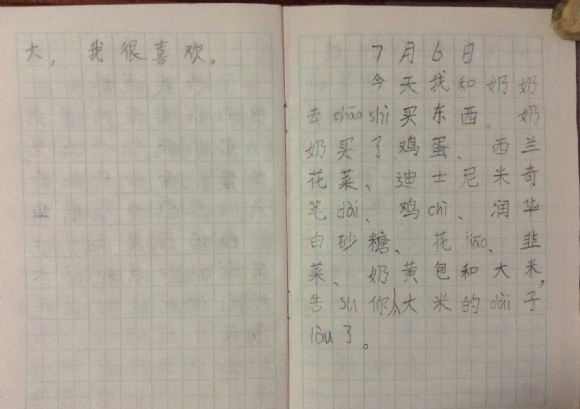 大，我很喜欢。
7月6日
今天我和奶奶
去chāo shì买东西。奶
奶买了鸡蛋、西兰
花菜、迪士尼米奇
笔dài、鸡chì、润华
白砂糖、花jiāo、韭
菜、奶黄包和大米，
告su你，大米的dài子
lòu了。